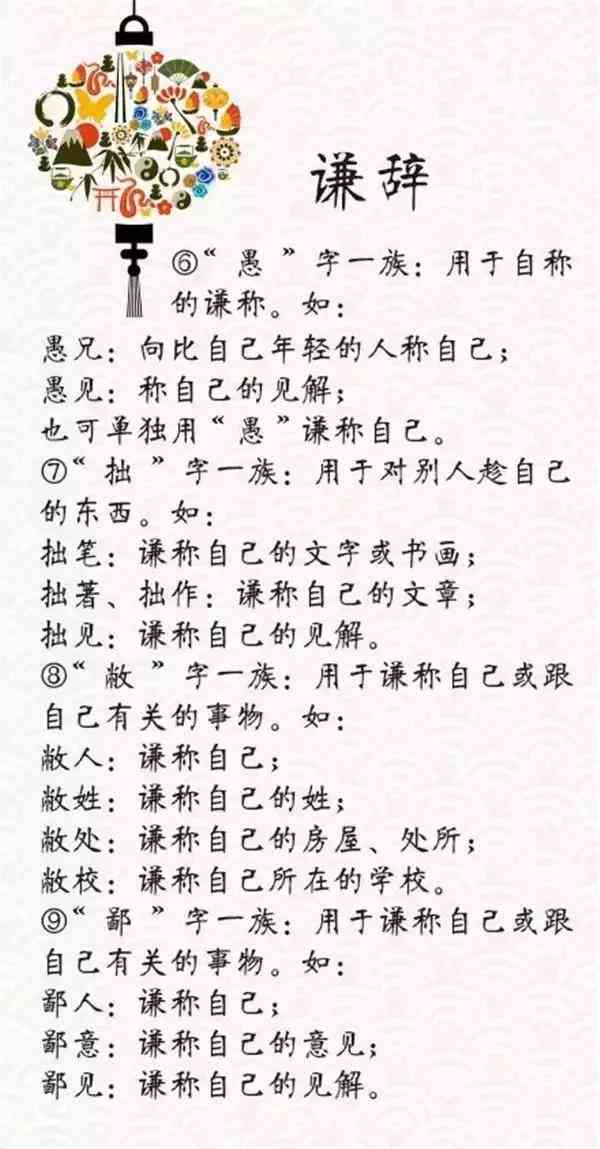 谦辞
⑥“愚”字一族：用于自称
的谦称。如：
愚兄：向比自己年轻的人称自己；
愚见：称自己的见解；
也可单独用“愚”谦称自己。
⑦“拙”字一族：用于对别人趁自己
的东西。如：
拙笔：谦称自己的文字或书画；
拙著、拙作：谦称自己的文章；
拙见：谦称自己的见解。
⑧“敝”字一族：用于谦称自己或跟
自己有关的事物。如：
敝人：谦称自己；
敝姓：谦称自己的姓；
敝处：谦称自己的房屋、处所；
敝校：谦称自己所在的学校。
⑨“鄙”字一族：用于谦称自己或跟
自己有关的事物。如：
鄙人：谦称自己；
鄙意：谦称自己的意见；
鄙见：谦称自己的见解。